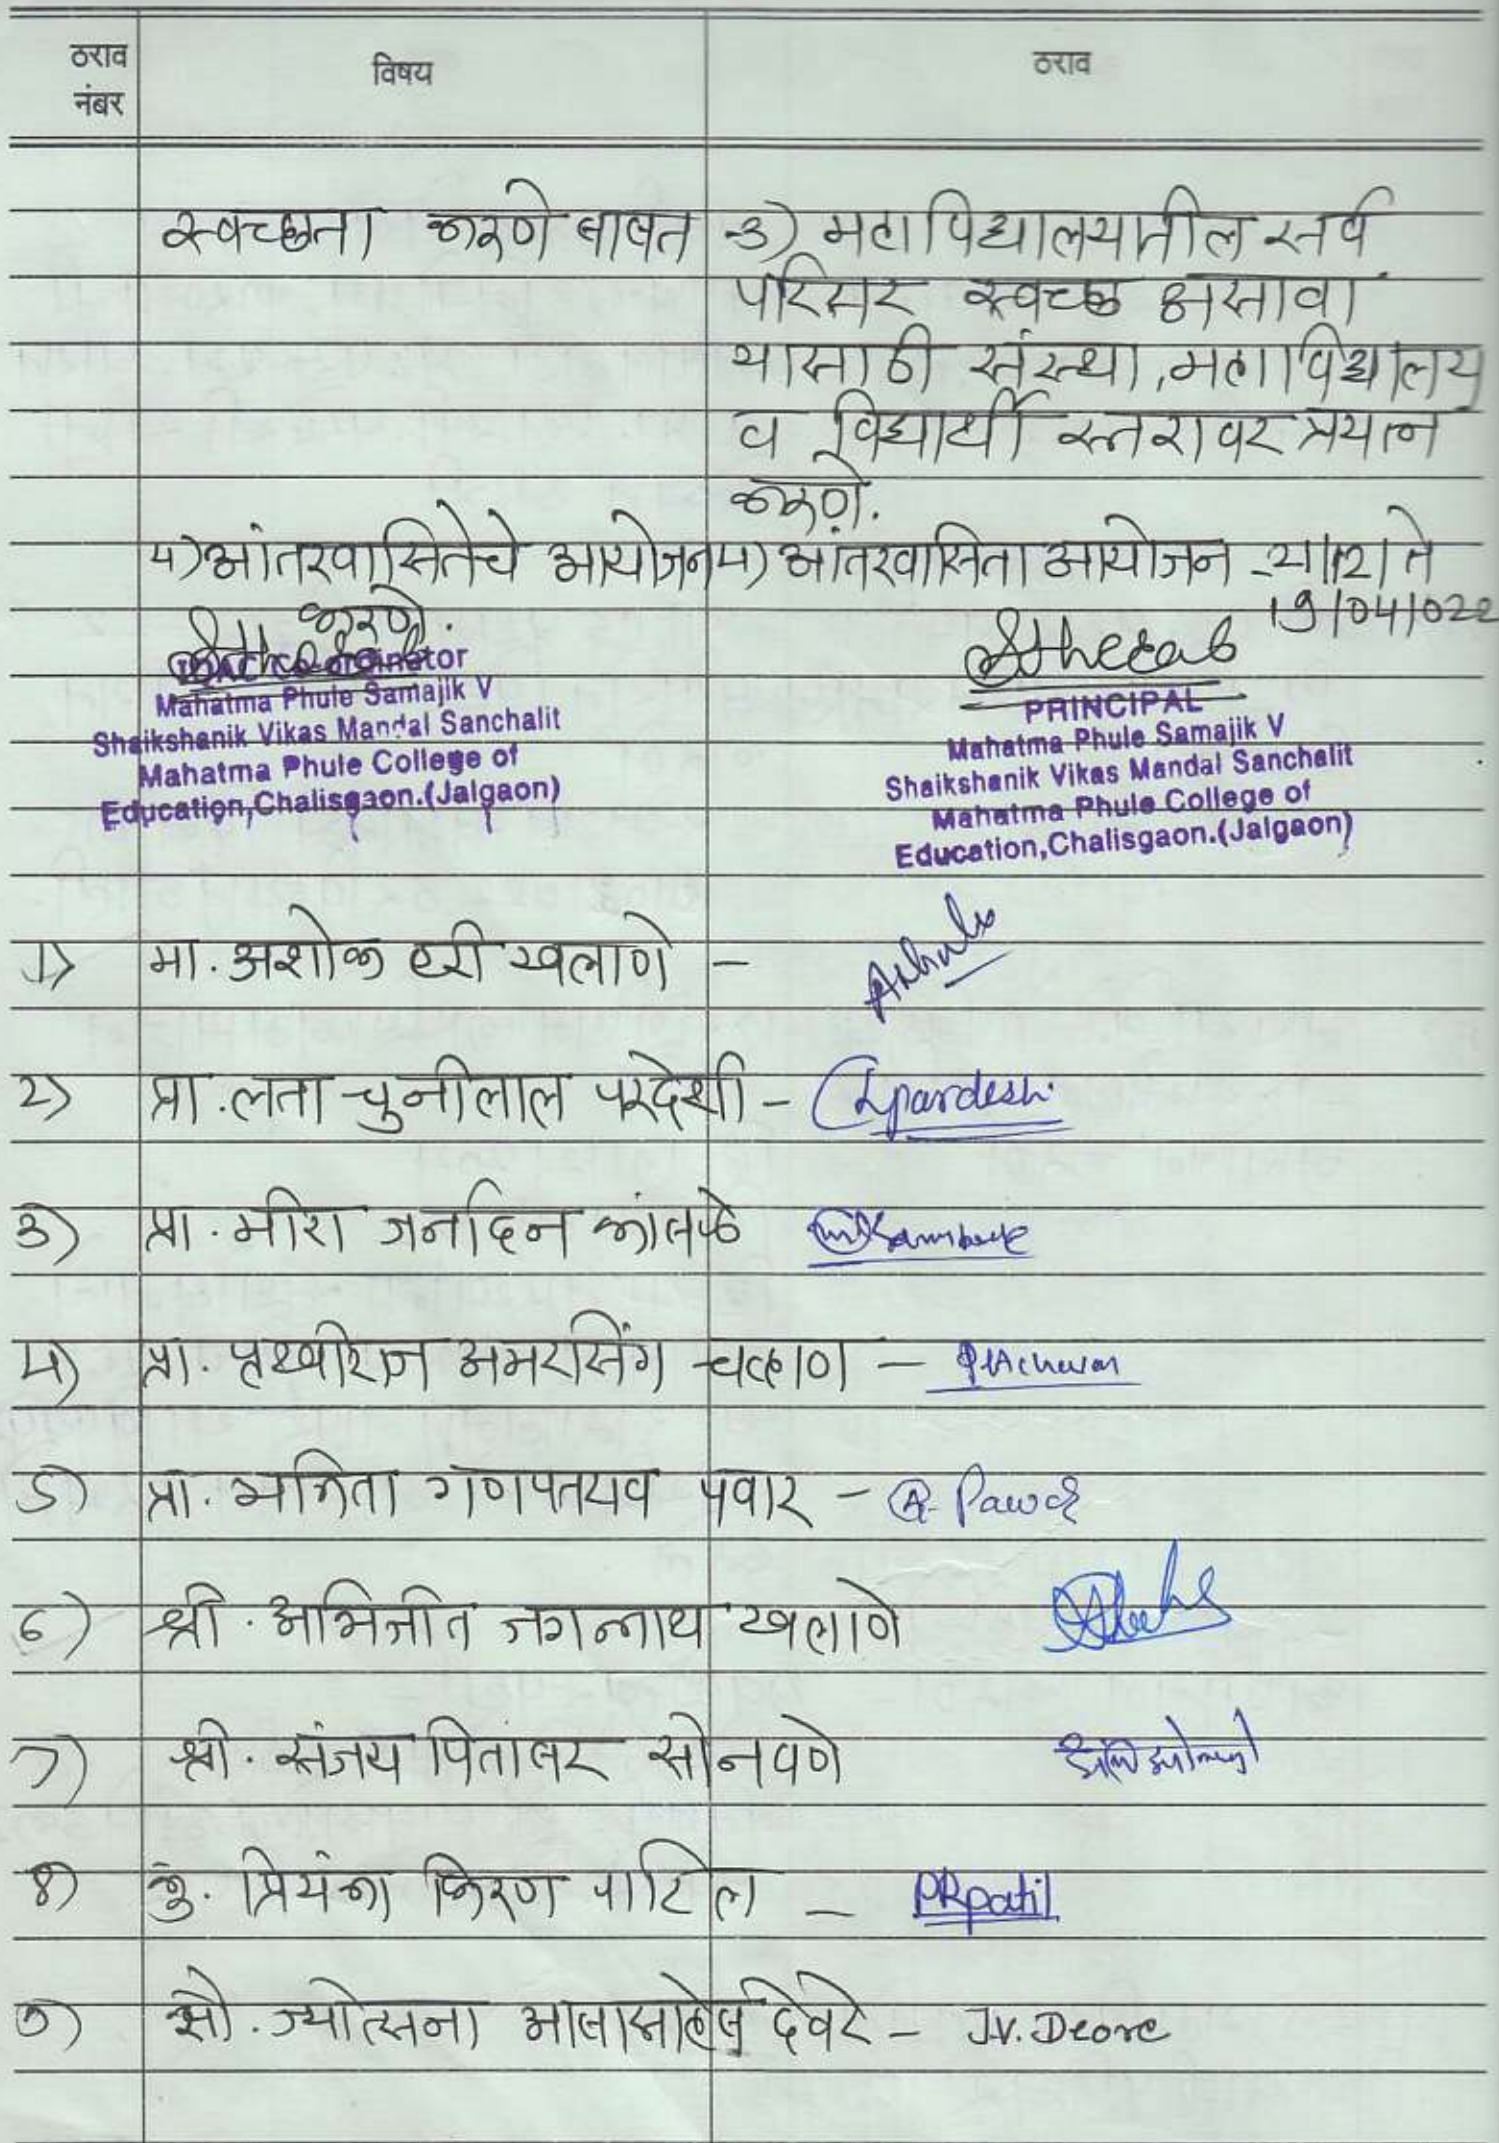 ठराव नंबर
विषय
ठराव
स्वच्छता करणे बाबत
3) महाविद्यालयातील सर्व
परिसर स्वच्छ असावा
यासाठी संस्था, महाविद्यालय
व विद्यार्थी स्तरावर प्रयत्न
करणे.
४) आंतरवासितेचे आयोजन
करणे.
४) आंतरवासिता आयोजन
19/04/022
Co-ordinator
Mahatma Phule Samajik V
Shaikshanik Vikas Mandal Sanchalit
Mahatma Phule College of
Education,Chalisgaon.(Jalgaon)
PRINCIPAL
Mahatma Phule Samajik V
Shaikshanik Vikas Mandal Sanchalit
Mahatma Phule College of
Education,Chalisgaon.(Jalgaon)
1) मा. अशोक हरी खलाणे -
2) प्रा. लता चुनीलाल परदेशी - Lpardeshi
3) प्रा. मीरा जनार्दन कांबळे
४) प्रा. पृथ्वीराज अमरसिंग चव्हाण - PAChavan
5) प्रा. अनिता गणपतराव पवार - A. Pawar
6) श्री. अभिजीत जगन्नाथ खलाणे
7) श्री. संजय पितांबर सोनवणे
8) कु. प्रियंका किरण पाटिल - PRpatil
9) सौ. ज्योत्सना आबासाहेब देवरे - J.V. Deore